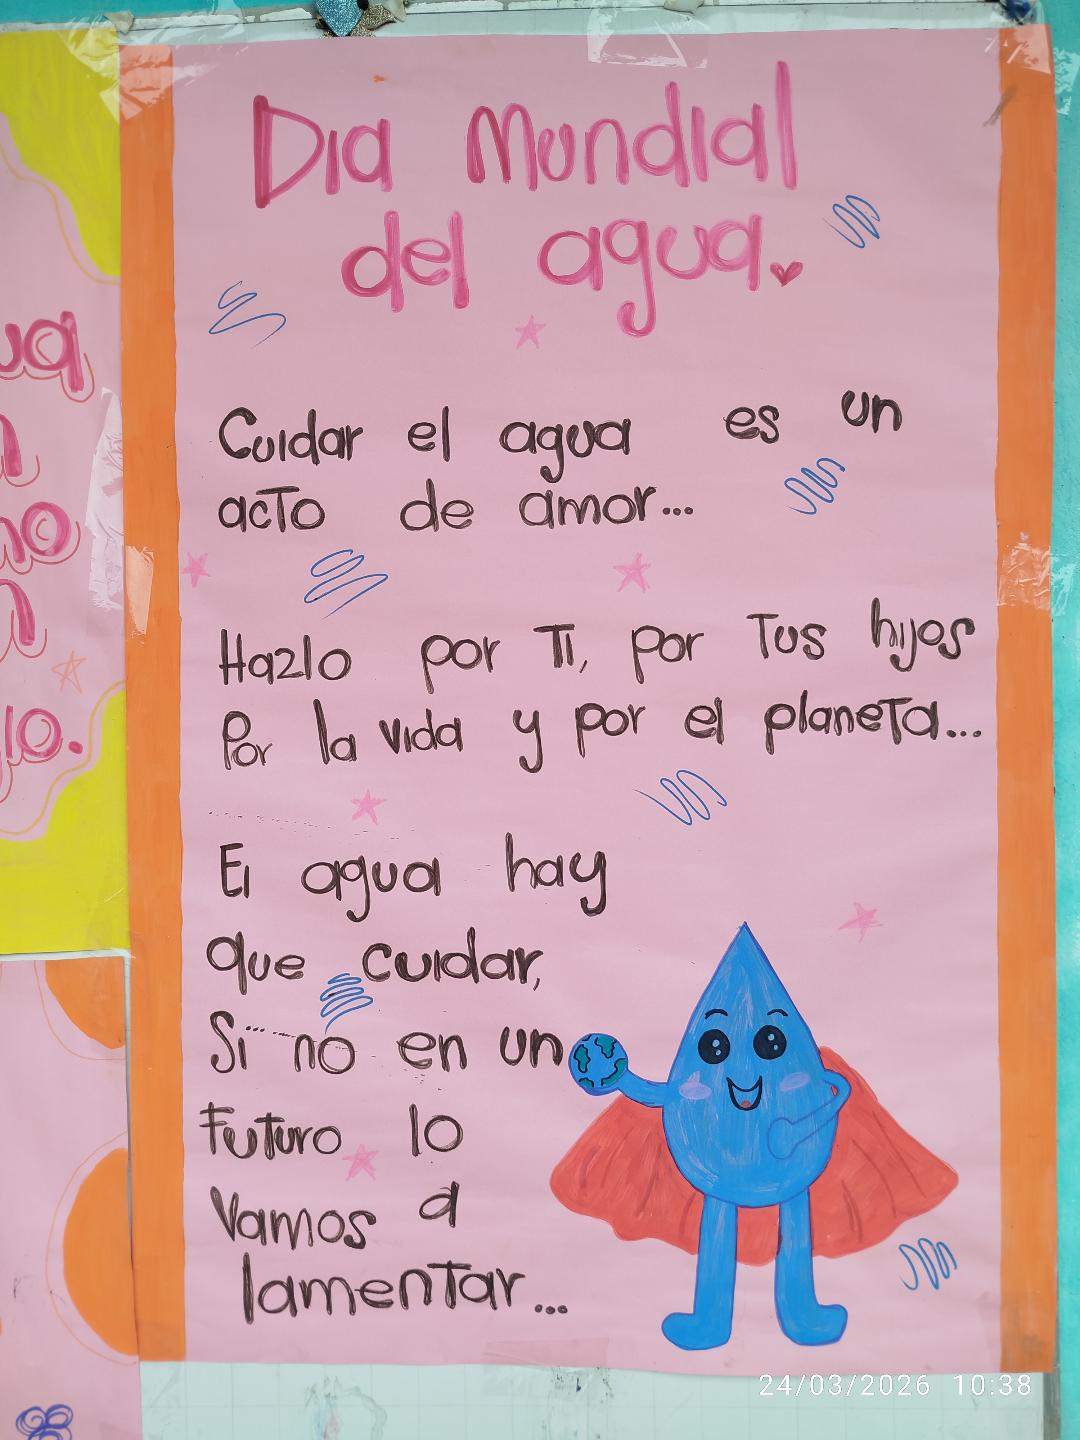 Dia Mundial
del agua.
Cuidar el agua es un
acto de amor...
Hazlo por Ti, por Tus hijos
Por la vida y por el planeta...
El agua hay
que cuidar,
Si no en un
Futuro lo
Vamos a
lamentar...
ua
no
lo.
24/03/2026 10:38